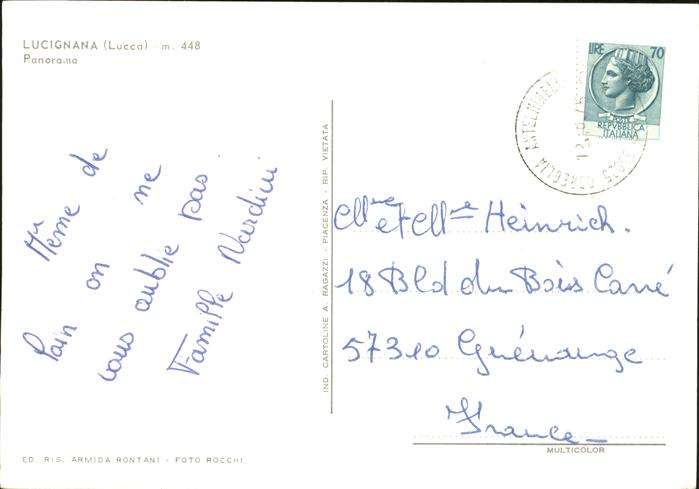 LUCIGNANA (Lucca) - m. 448
Panorama
Mr Meme de
loin on ne
vous oublie pas.
Famille Nardini
ED. RIS. ARMIDA RONTANI - FOTO ROCCHI
IND. CARTOLINE A. RAGAZZI - PIACENZA - RIP. VIETATA
LIRE 70
POSTE
REPVBBLICA
ITALIANA
COREGLIA ANTELMINELLI
Mme et Mlle Heinrich.
18 Bld du Bois Carré
57310 Guénange
France
MULTICOLOR